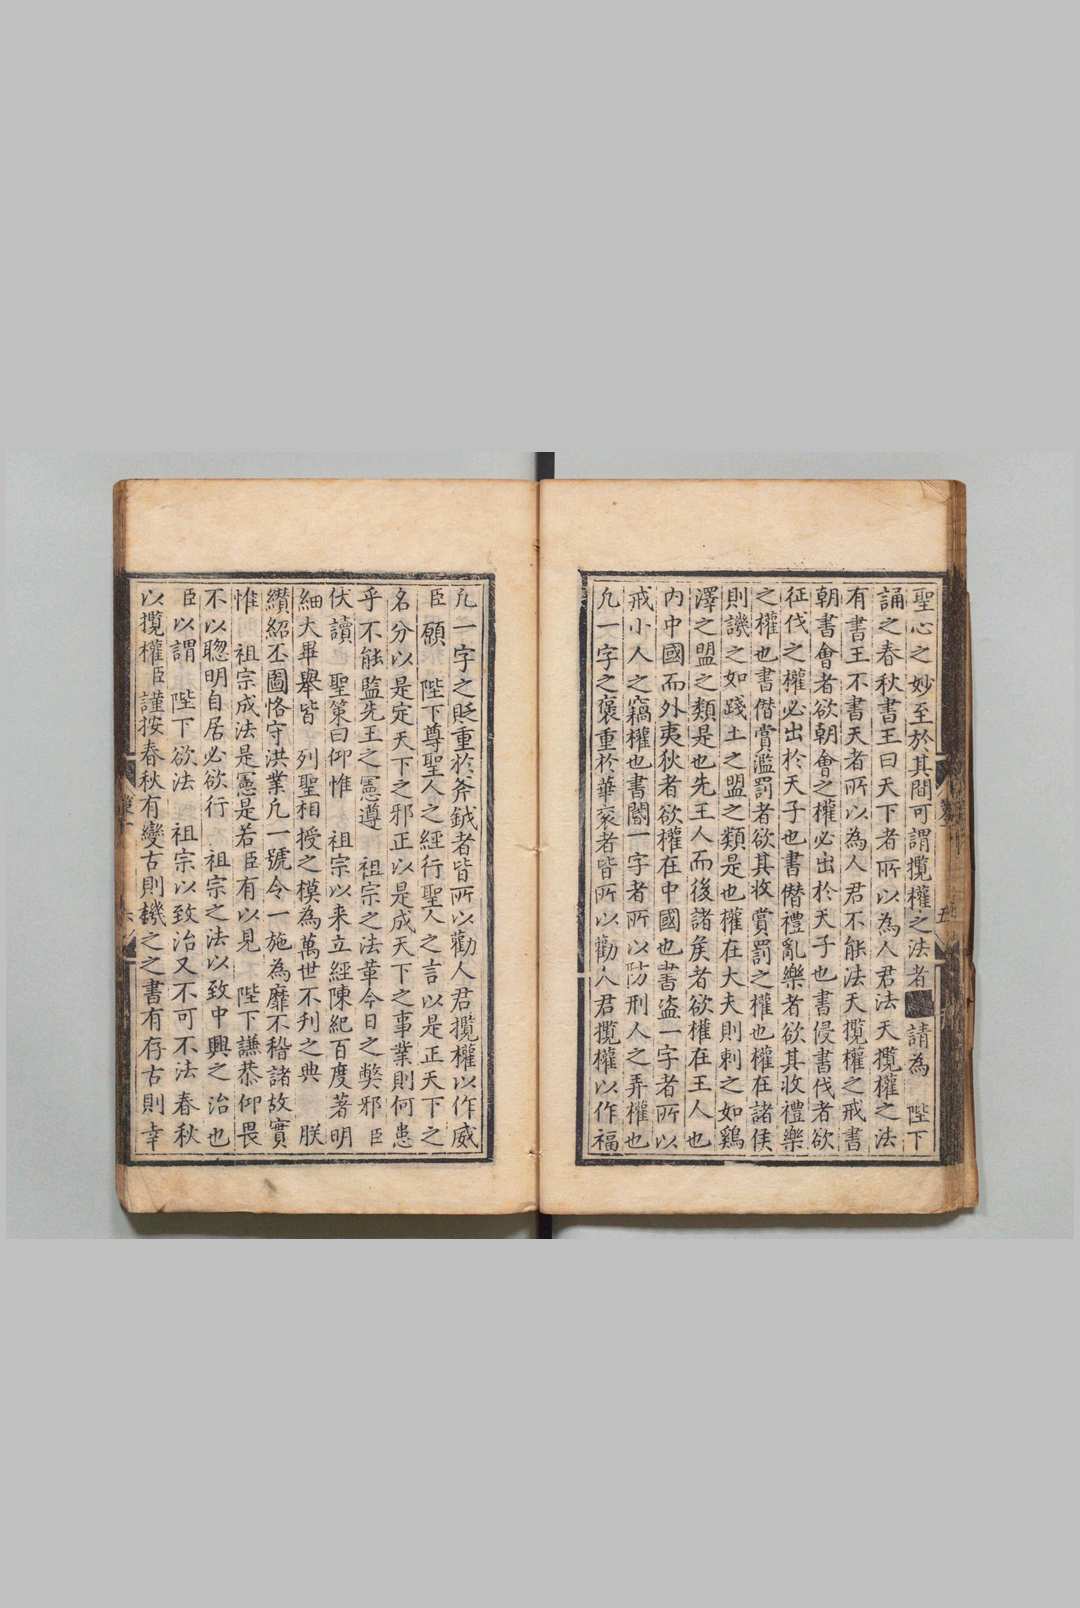 聖心之妙至於其間可謂攬權之法者請為 陛下
誦之春秋書王曰天下者所以為人君法天攬權之法
有書王不書天者所以為人君不能法天攬權之戒書
朝書會者欲朝會之權必出於天子也書侵書伐者欲
征伐之權必出於天子也書僭禮亂樂者欲其收禮樂
之權也書僭賞濫罰者欲其收賞罰之權也權在諸侯
則譏之如踐土之盟之類是也權在大夫則刺之如鷄
澤之盟之類是也先王人而後諸矦者欲權在王人也
內中國而外夷狄者欲權在中國也書盗一字者所以
戒小人之竊權也書閽一字者所以防刑人之弄權也
凢一字之襃重於華衮者皆所以勸人君攬權以作福
凢一字之貶重於斧鉞者皆所以勸人君攬權以作威
臣願 陛下尊聖人之經行聖人之言以是正天下之
名分以是定天下之邪正以是成天下之事業則何患
乎不能監先王之憲遵 祖宗之法革今日之獘邪臣
伏讀 聖策曰仰惟 祖宗以来立經陳紀百度著明
細大畢舉皆 列聖相授之模為萬世不刋之典 朕
纘紹丕圖恪守洪業凢一號令一施為靡不稽諸故實
惟 祖宗成法是憲是若臣有以見 陛下謙恭仰畏
不以聦明自居必欲行 祖宗之法以致中興之治也
臣以謂 陛下欲法 祖宗以致治又不可不法春秋
以攬權臣謹按春秋有變古則譏之之書有存古則幸
策一
五
六